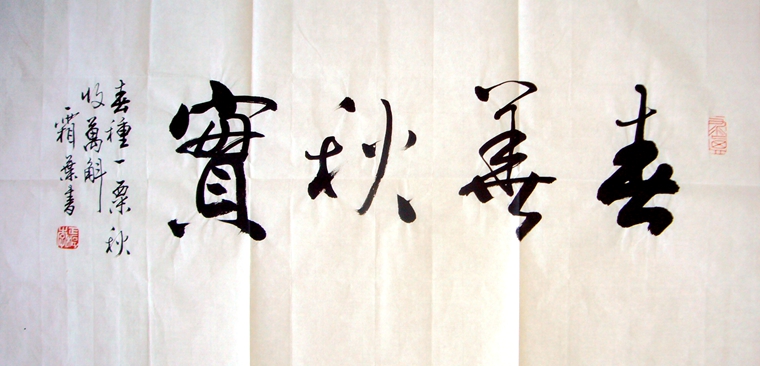 春華秋實
春種一粟秋
收萬斛
霜葉書